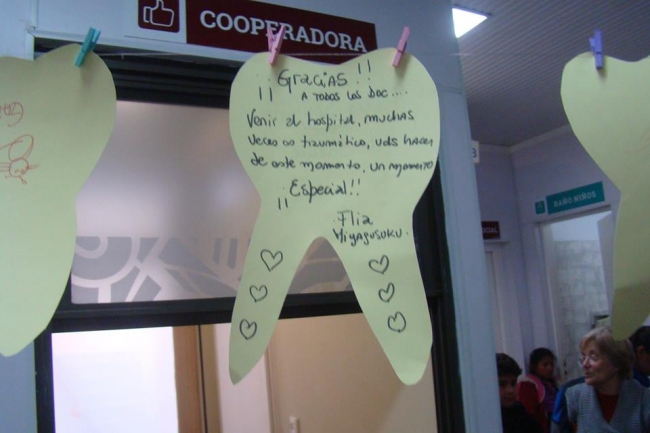 COOPERADORA
¡¡Gracias!!
A TODOS LOS DOC....
Venir al hospital, muchas
veces es traumático, uds hacen
de este momento, un momento
¡¡Especial!!
Flia
Miyagusuku.
BAÑO NIÑOS